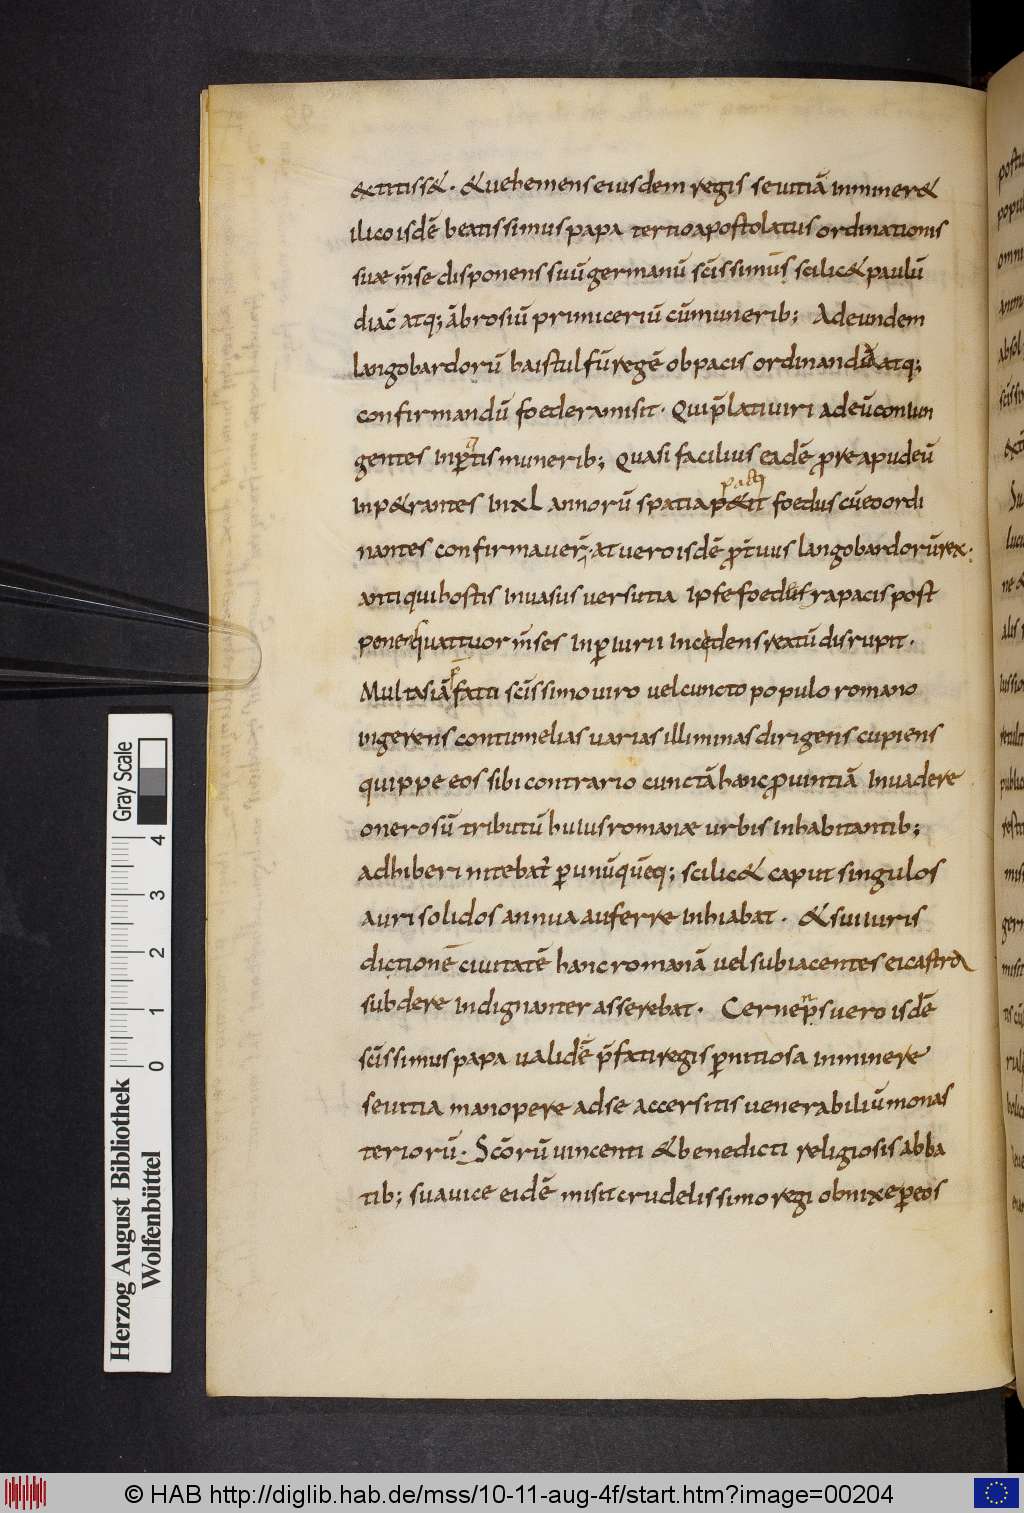 &titiss&. & uehemens eiusdem regis seuitiā inminer&
ilico isdē beatissimus papa tertio apostolatus ordinationis
suae m̄se disponens suū germanū sc̄issimūs scilic& paulū
diac̄ atq; ābrosiū primiceriū cū munerib; Ad eundem
langobardorū haistulfū regē ob pacis ordinandū atq;
confirmandū foedera misit. Qui p̄lati uiri ad eū coniun
gentes inp̄tis munerib; quasi facilius eadē pro re apud eū
inp&rantes in xl annorū spatia p&it pacti foedus cū eo ordi
nantes confirmauer̄. at uero isdē ꝓt̄uus langobardorū rex.
antiqui hostis inuasus uersutia ipse foedus rapacis post
pene quattuor m̄ses in ꝑiurii incedens reatū disrupit.
Multas iā fatti sc̄issimo uiro uel cuncto populo romano
ingerens contumelias uarias illi minas dirigens cupiens
quippe eos sibi contrario cunctā hanc ꝓuintiā inuadere
onerosū tributū huius romanae urbis inhabitantib;
adhiberi nitebat̄ ꝑ unūquēq; scilic& caput singulos
auri solidos annua auferre inhiabat. & sui iuris
dictionē ciuitatē hanc romanā uel subiacentes ei castra
subdere indignanter asserebat. Cernens p̄s uero isdē
sc̄issimus papa ualidē p̄fati regis ꝑnitiosa inminere
seuitia manopere ad se accersitis uenerabiliū monas
teriorū. Sc̄orū uincenti & benedicti religiosis abba
tib; sua uice eidē misit crudelissimo regi obnixe ꝑ eos
Gray Scale
4 3 2 1 0
Herzog August Bibliothek
Wolfenbüttel
© HAB http://diglib.hab.de/mss/10-11-aug-4f/start.htm?image=00204